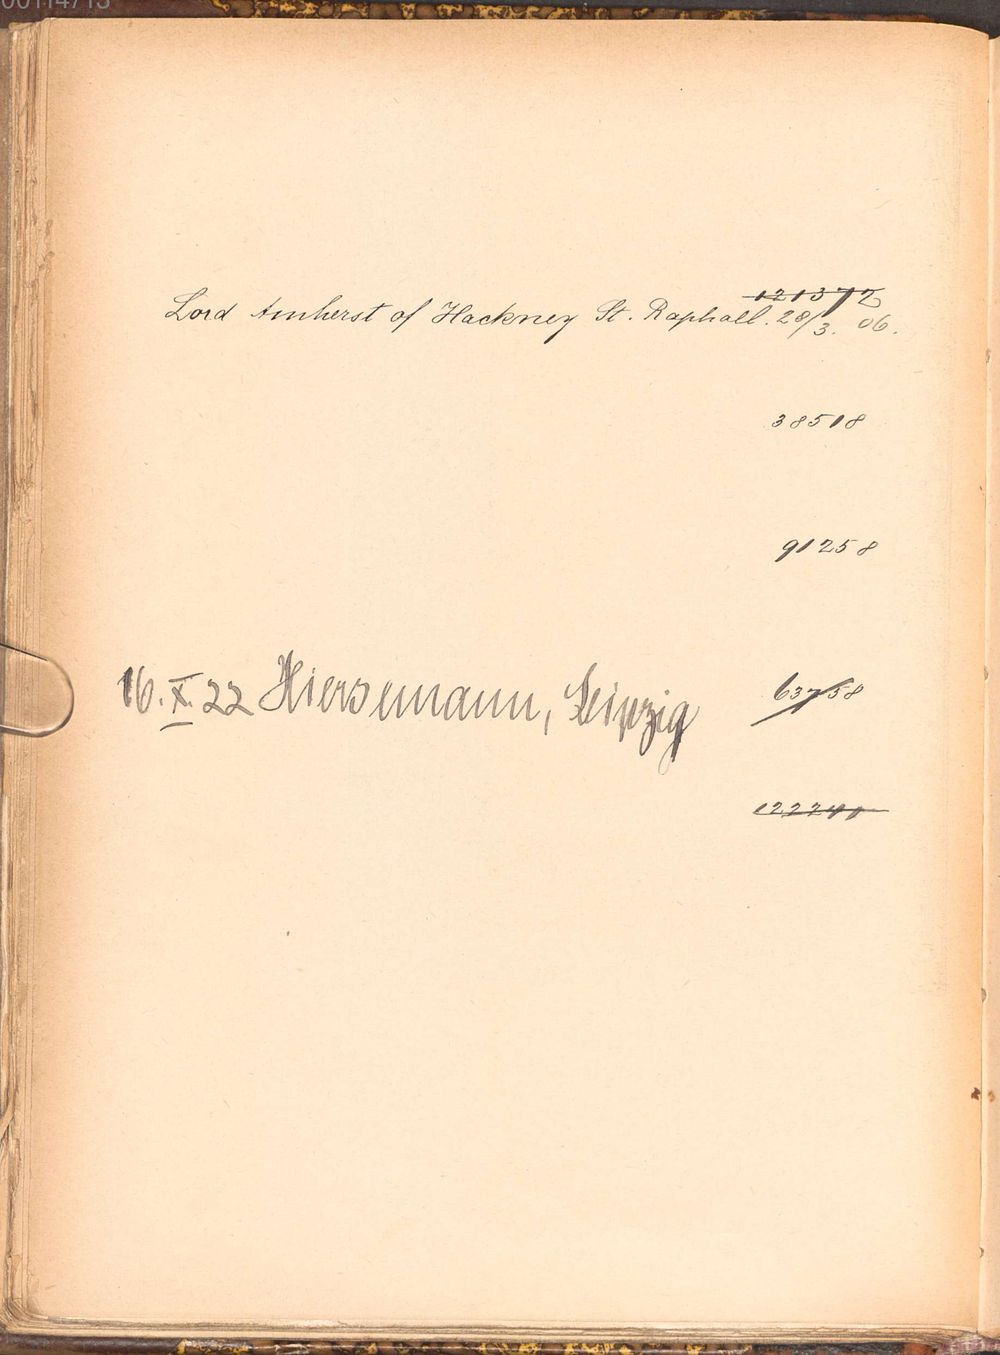 00114713
121372
Lord Amherst of Hackney St. Raphall. 28/3. 06.
38518
91258
16. X. 22 Hiersemann, Leipzig
63758
122240